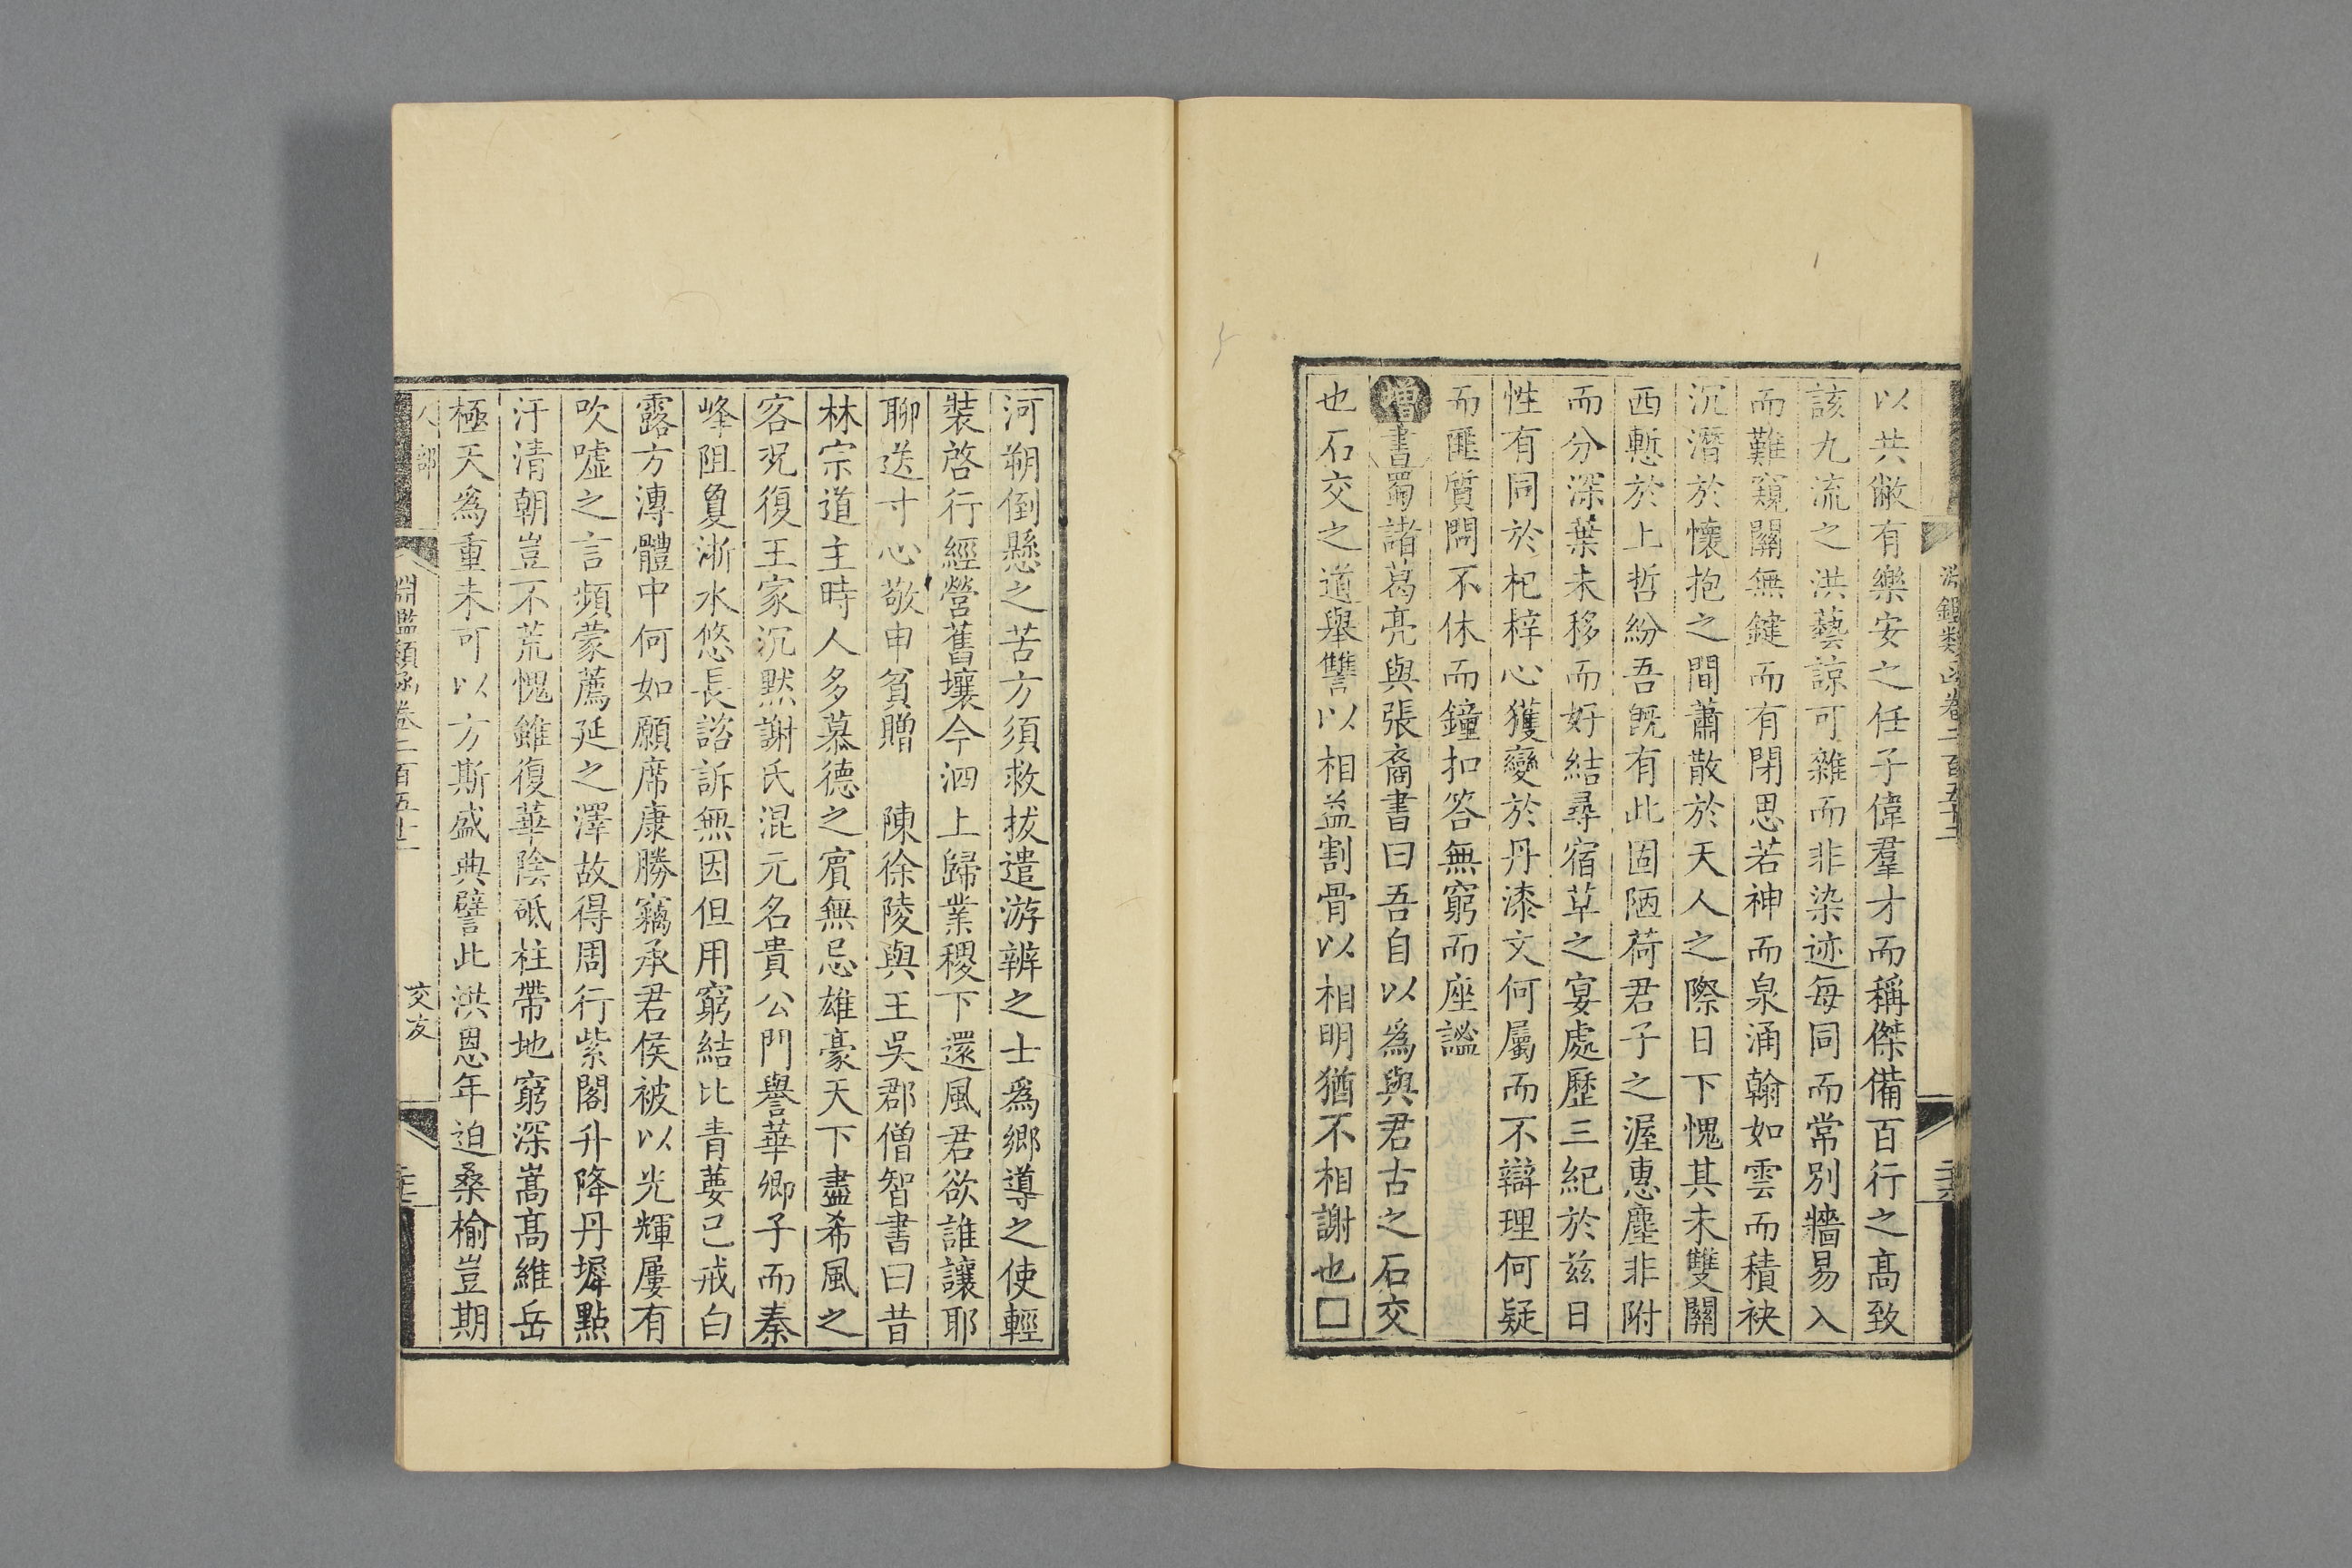 淵鑑類函卷二百五十二
以共敝有樂安之任子偉羣才而稱傑備百行之髙致
該九流之洪藝諒可雜而非染迹每同而常別牆易入
而難窺關無鍵而有閉思若神而泉涌翰如雲而積袂
沉潛於懷抱之間蕭散於天人之際日下愧其未雙關
西慙於上哲紛吾旣有此固陋荷君子之渥惠塵非附
而分深葉未移而好結尋宿草之宴處歷三紀於兹日
性有同於杞梓心獲變於丹漆文何屬而不辯理何疑
而匪質問不休而鐘扣答無窮而座謐
增書蜀諸葛亮與張裔書曰吾自以爲與君古之石交
也石交之道舉讐以相益割骨以相明猶不相謝也□
河朔倒懸之苦方須救拔遣游辨之士爲鄉導之使輕
裝啓行經營舊壤今泗上歸業稷下還風君欲誰讓耶
聊送寸心敬申貧贈　陳徐陵與王吳郡僧智書曰昔
林宗道主時人多慕德之賓無忌雄豪天下盡希風之
客况復王家沉默謝氏混元名貴公門譽華卿子而秦
峰阻敻浙水悠長諮訴無因但用窮結比青萋已戒白
露方漙體中何如願席康勝竊承君侯被以光輝屢有
吹噓之言頻蒙薦延之澤故得周行紫閣升降丹墀點
汙清朝豈不荒愧雖復華陰砥柱帶地窮深嵩髙維岳
極天爲重未可以方斯盛典譬此洪恩年迫桑榆豈期
人部　淵鑑類函卷二百五十二　交友